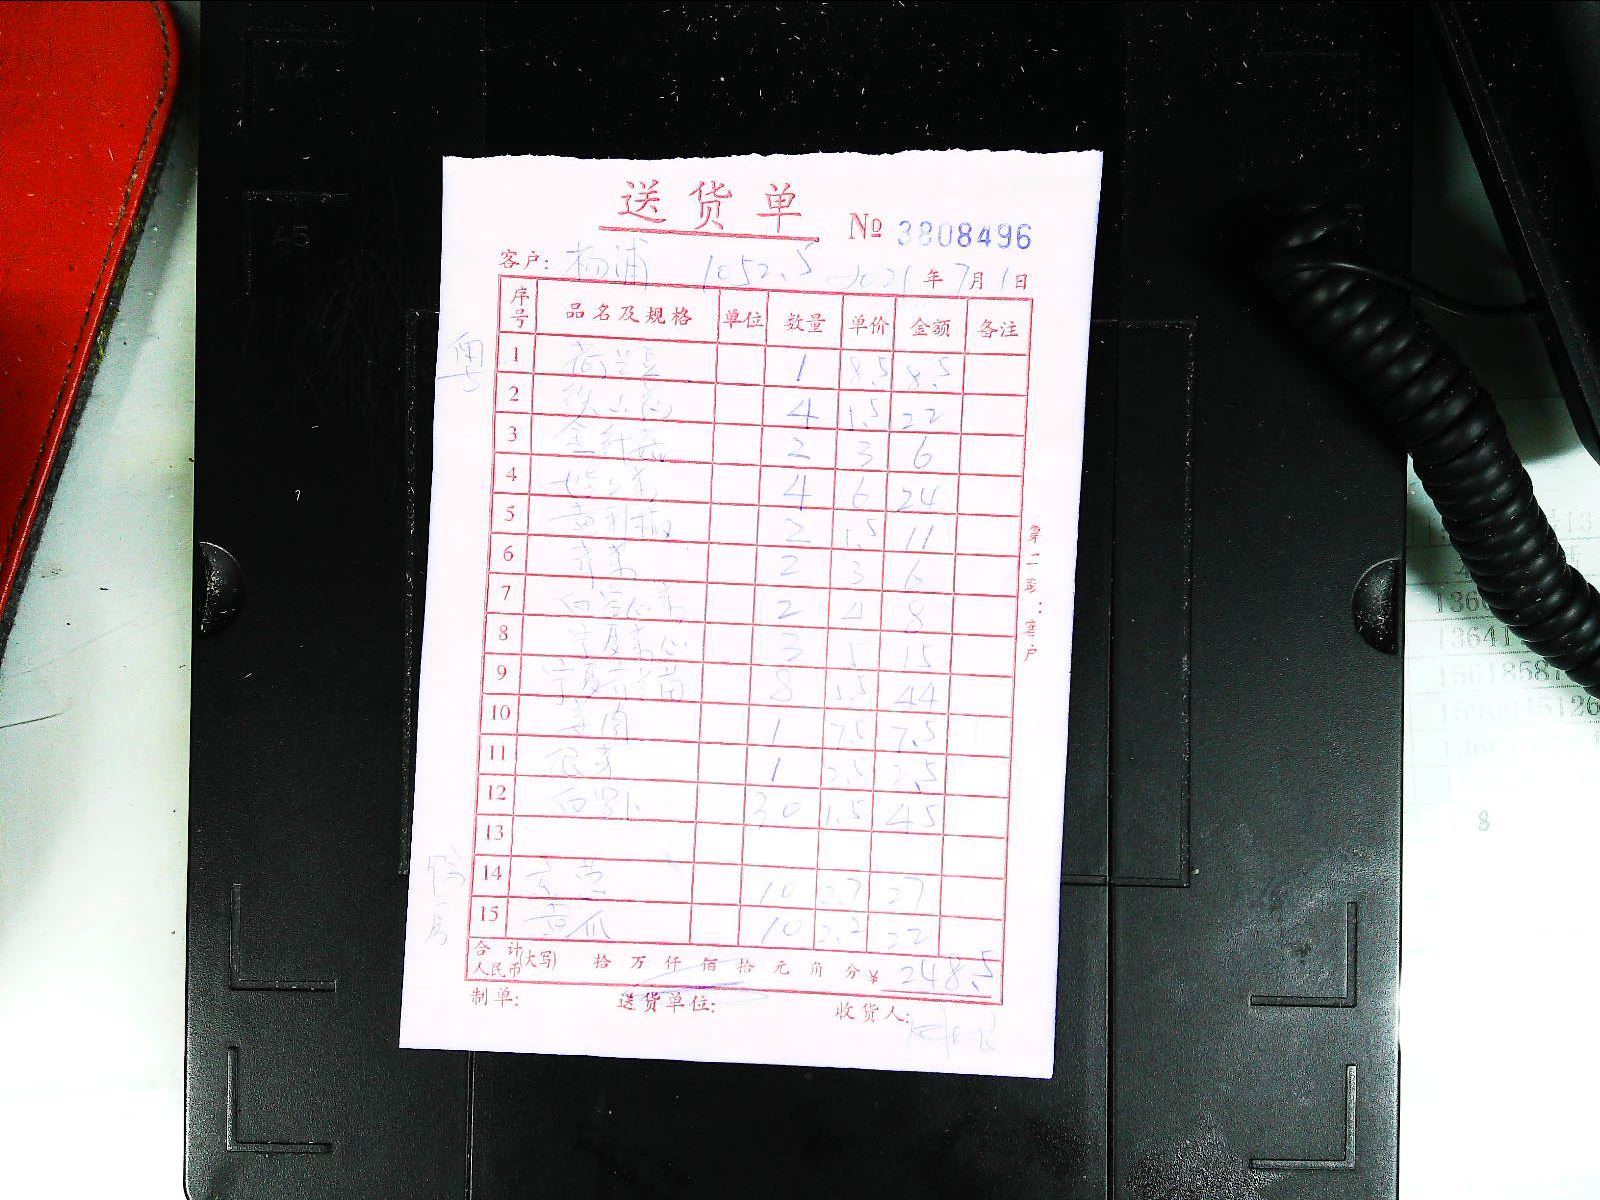 送货单
No 3808496
客户: 杨浦 1052.5 2021年7月1日
序号 品名及规格 单位 数量 单价 金额 备注
1 荷兰豆 1 8.5 8.5
2 铁山药 4 5.5 22
3 金针菇 2 3 6
4 4 6 24
5 黄彩椒 2 5.5 11
6 芹菜 2 3 6
7 2 4 8
8 宁夏菜心 3 5 15
9 宁夏芥兰苗 8 5.5 44
10 姜肉 1 7.5 7.5
11 1 2.5 2.5
12 白萝卜 30 1.5 45
13
14 京葱 10 2.7 27
15 黄瓜 10 2.2 22
合计人民币(大写) 拾 万 仟 佰 拾 元 角 分 ¥ 248.5
制单: 送货单位: 收货人:
第二联:客户
A4
A5